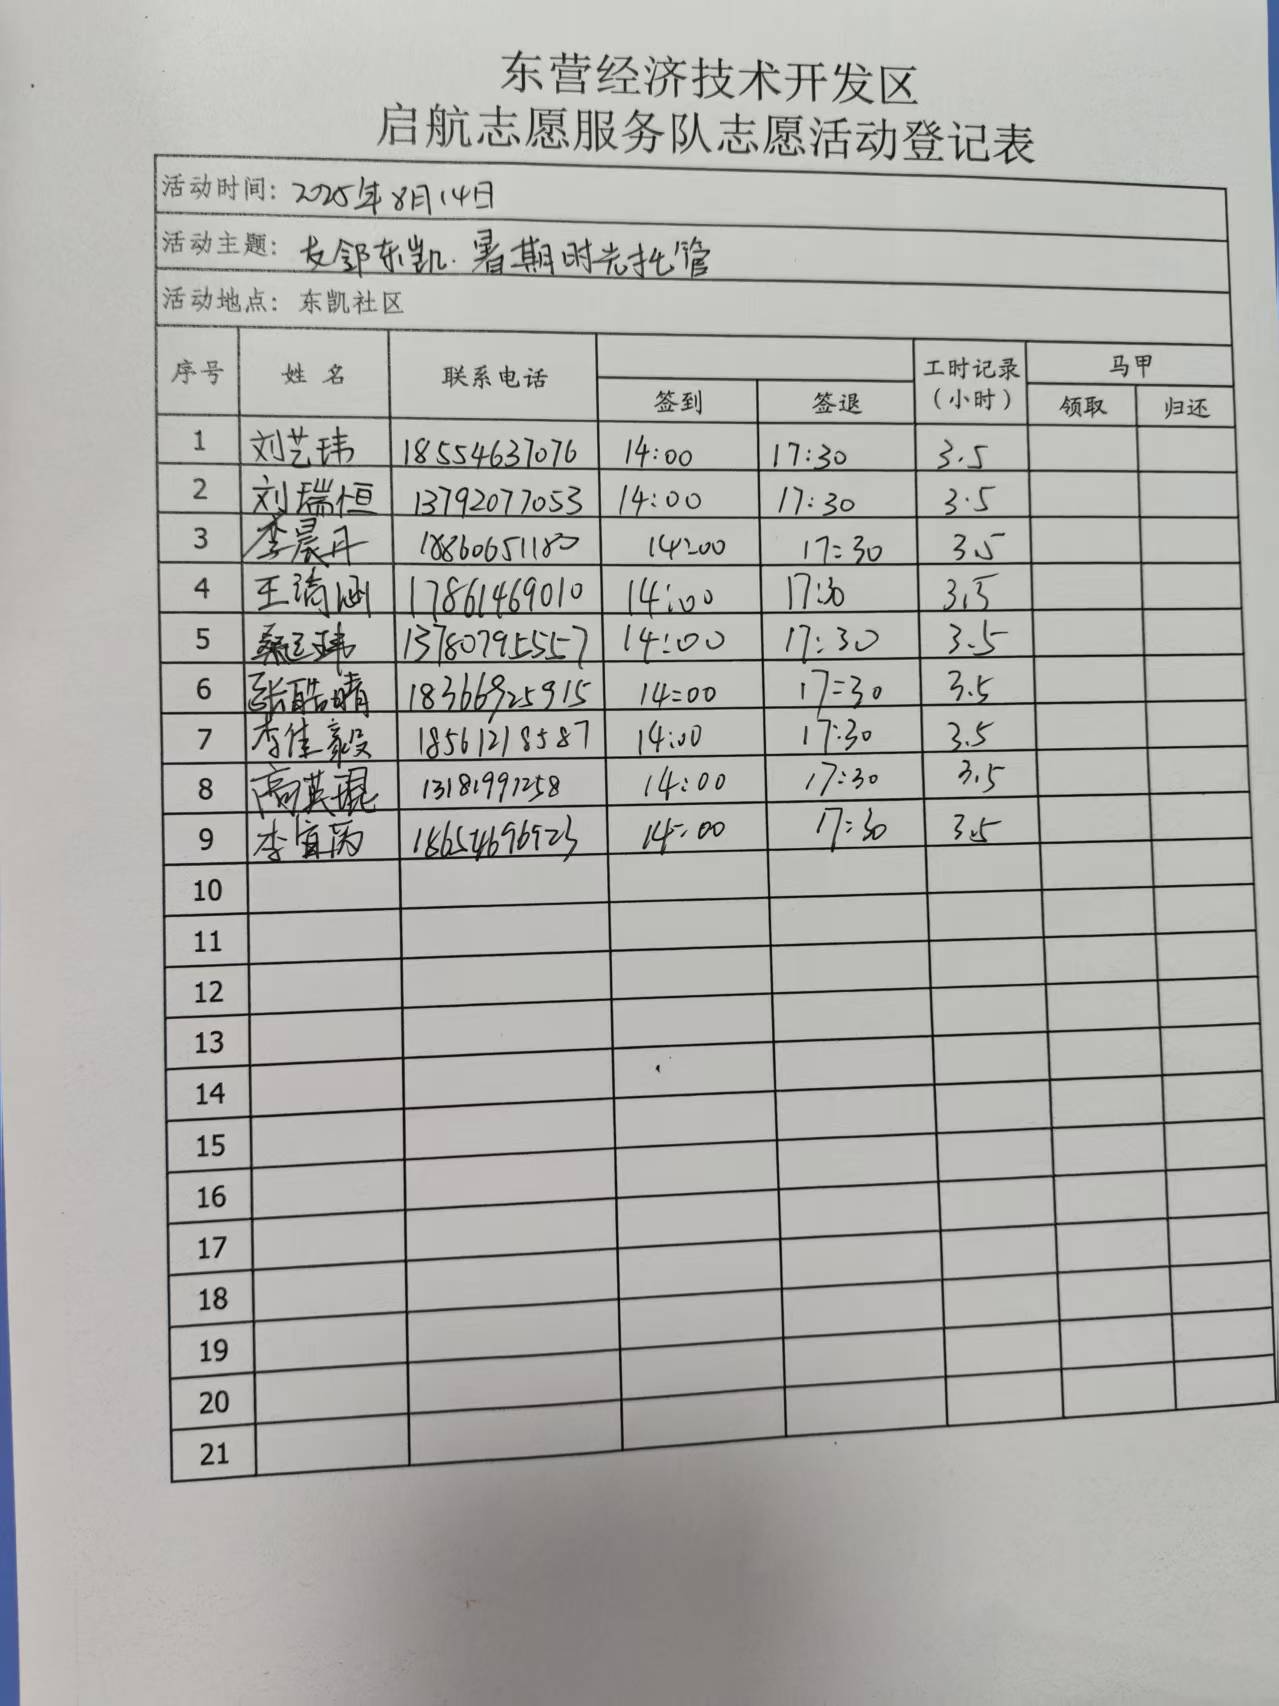 东营经济技术开发区
启航志愿服务队志愿活动登记表
活动时间: 2025年8月14日
活动主题: 友邻东凯.暑期时光托管
活动地点: 东凯社区
序号 姓 名 联系电话 工时记录(小时) 马甲
签到 签退 领取 归还
1 刘艺玮 18554637076 14:00 17:30 3.5
2 刘瑞恒 13792077053 14:00 17:30 3.5
3 李晨丹 18860651180 14:00 17:30 3.5
4 王 涵 17861469010 14:00 17:30 3.5
5 桑 玮 13780795557 14:00 17:30 3.5
6 张皓晴 18366925915 14:00 17:30 3.5
7 李佳毅 18561218587 14:00 17:30 3.5
8 高英琨 13181991258 14:00 17:30 3.5
9 李宜 18654696923 14:00 17:30 3.5
10
11
12
13
14
15
16
17
18
19
20
21